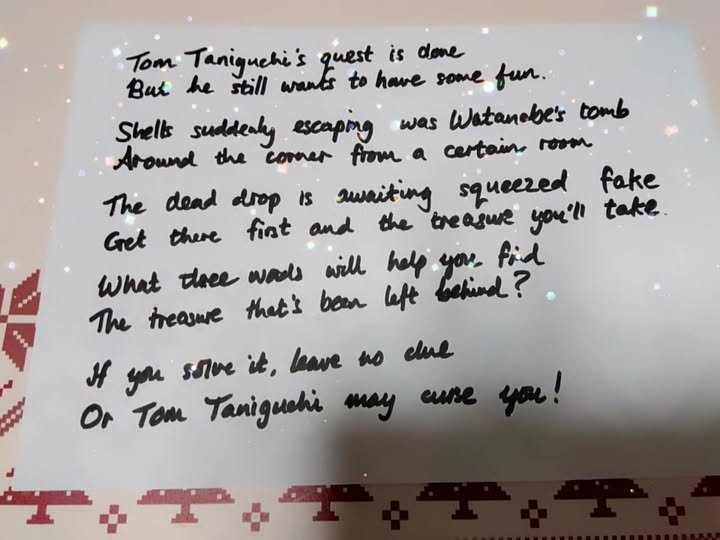 Tom Taniguchi's quest is done
But he still wants to have some fun.
Shells suddenly escaping was Watanabe's tomb
Around the corner from a certain room
The dead drop is awaiting squeezed fake
Get there first and the treasure you'll take.
What three words will help you find
The treasure that's been left behind?
If you solve it, leave no clue
Or Tom Taniguchi may curse you!